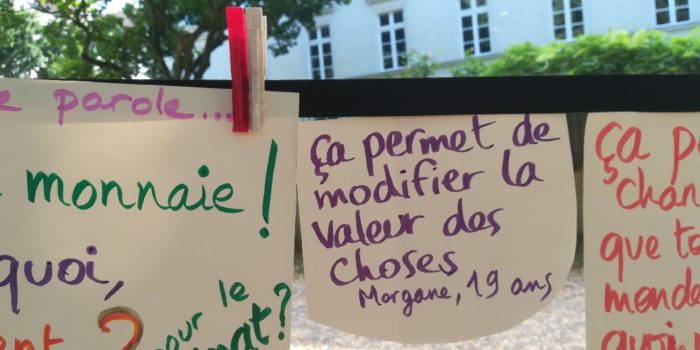 e parole...
monnaie !
quoi,
ent ?
pour le
mat ?
ça permet de
modifier la
valeur des
choses
Morgane, 19 ans
ça p
chan
que to
monde
quoi